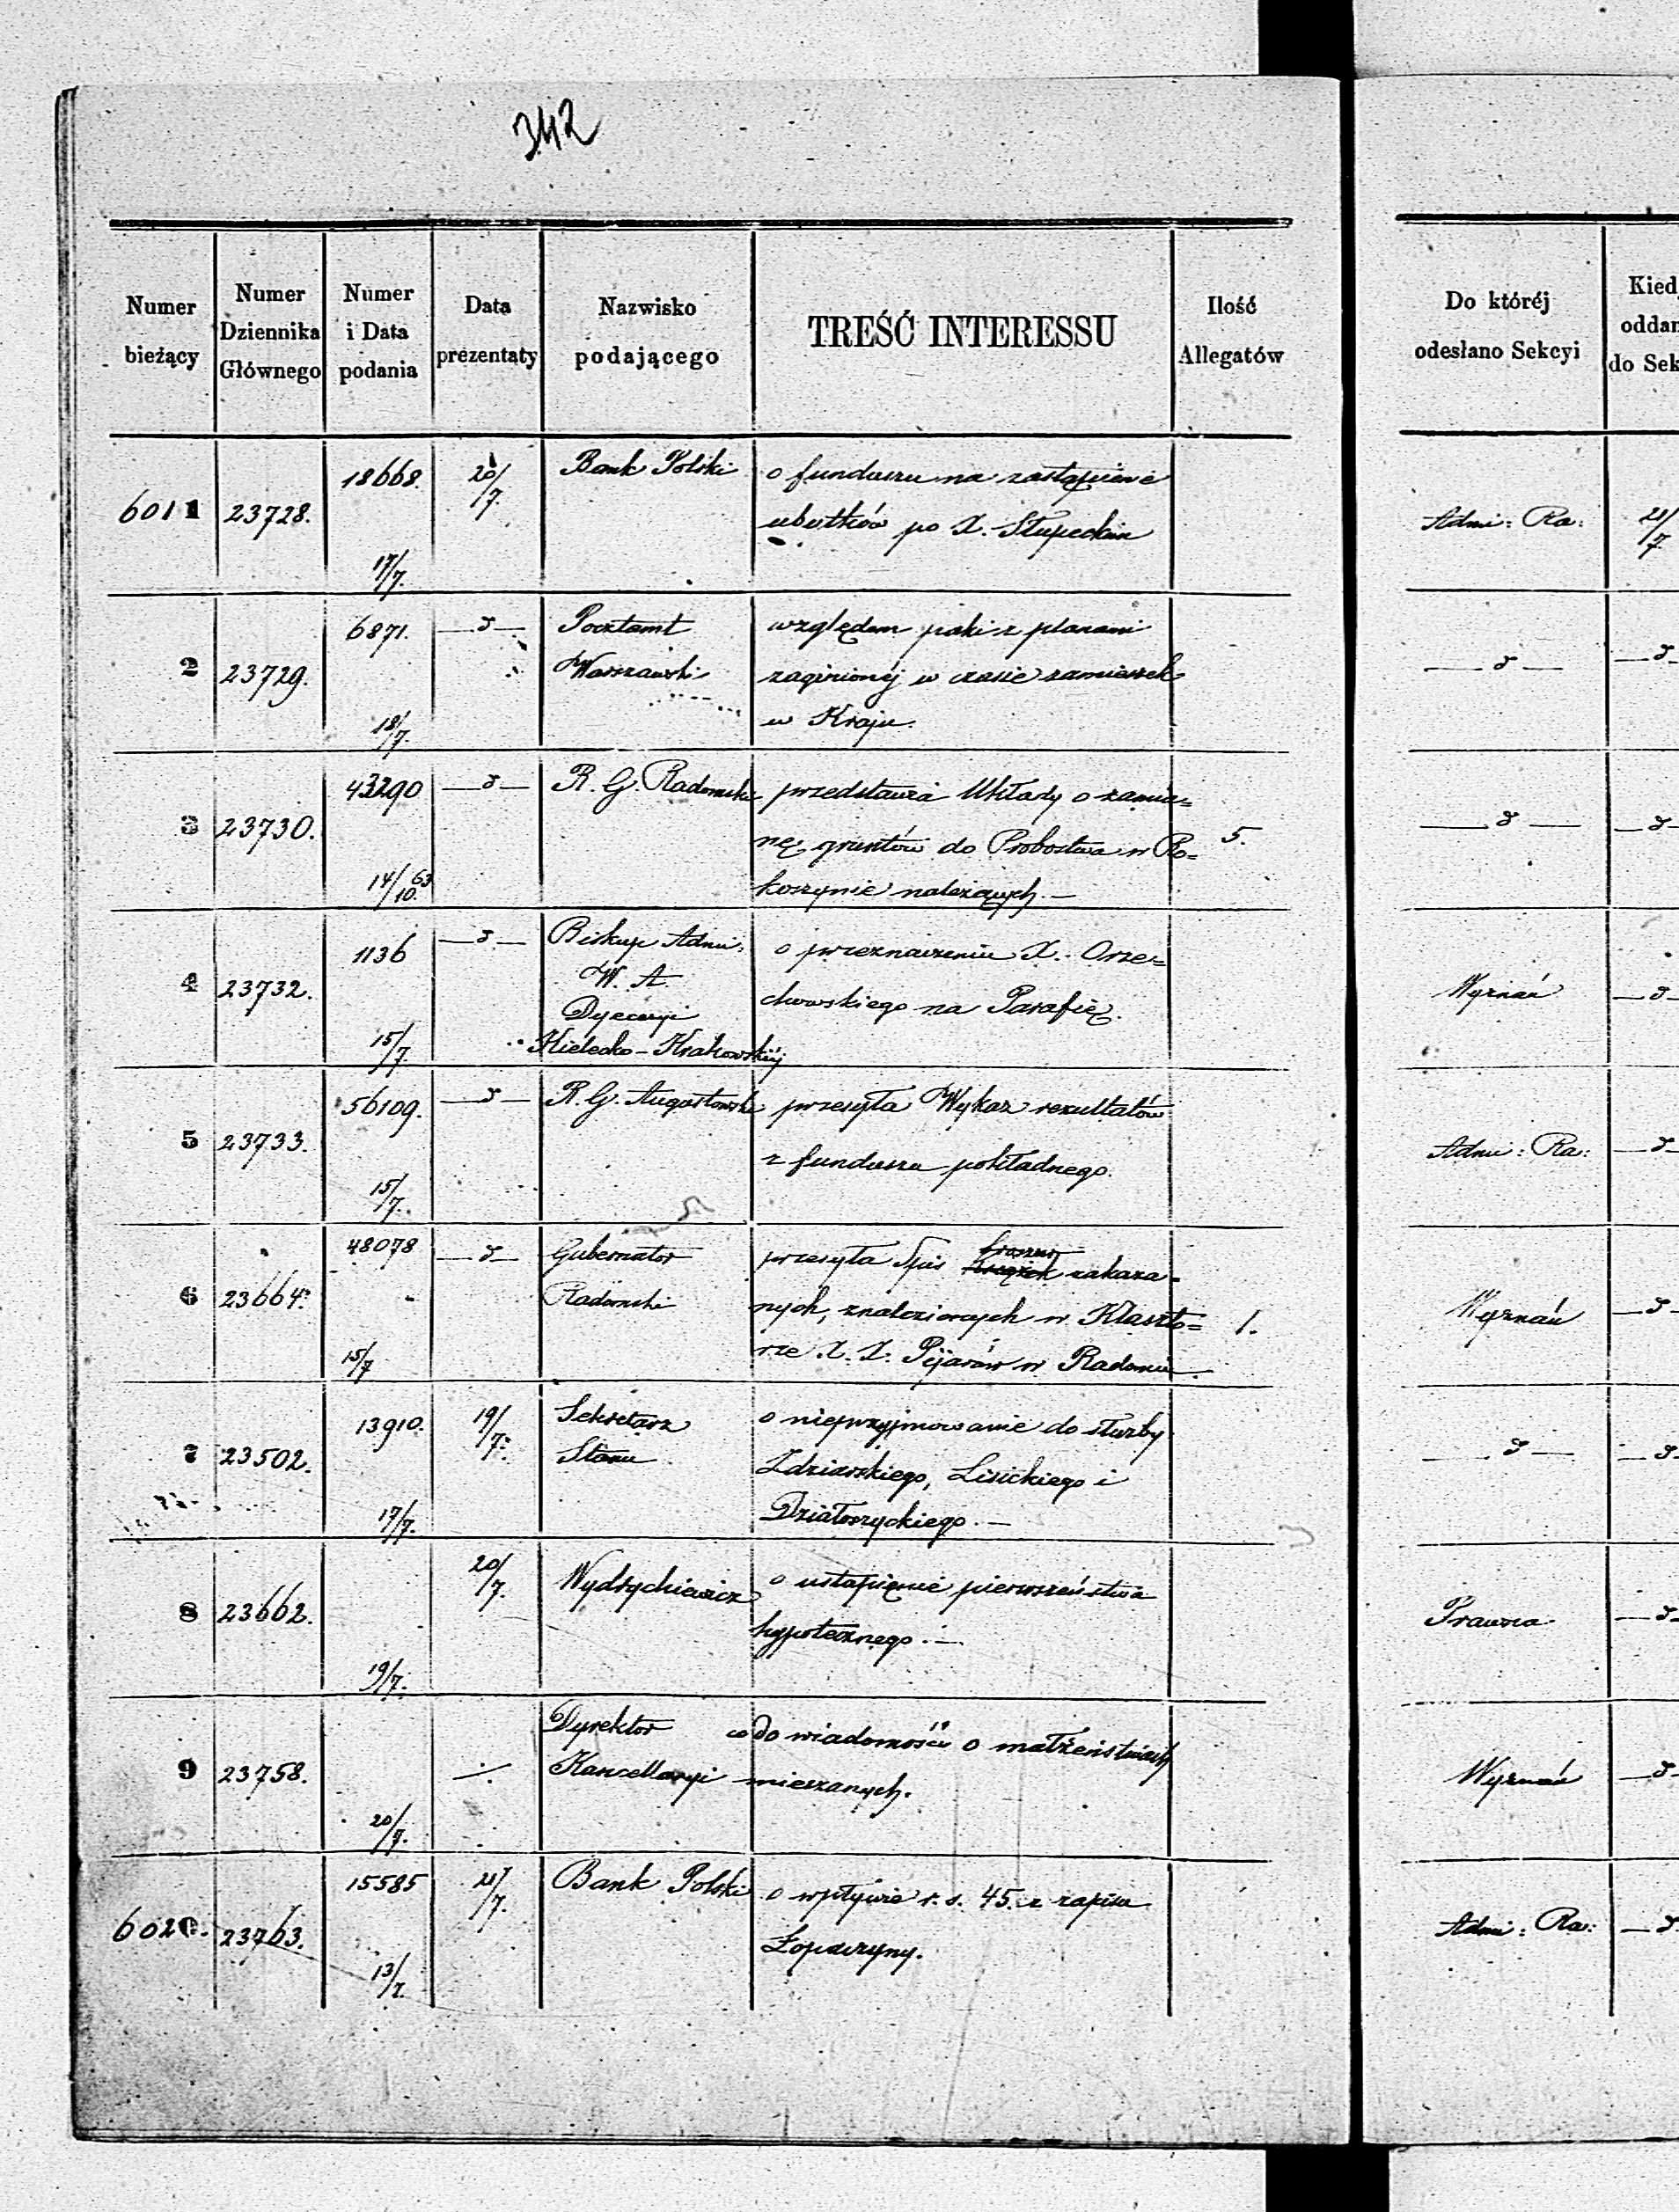 342
Numer bieżący
Numer Dziennika Głównego
Numer i Data podania
Data prezentaty
Nazwisko podającego
TREŚĆ INTERESSU
Ilość Allegatów
Do któréj odesłano Sekcyi
Kied
oddan
do Sek
6011 23728. 18668. 17/7. 20/7. Bank Polski
o funduszu na zastąpienie
ubytków po X. Słupeckim
Admi: Ra: 21/7
2 23729. 6871. 18/7. — d — Pocztamt
Warszawski
względem paki z planami
zaginionéj w czasie zamieszek
w Kraju.
— d — — d —
3 23730. 43290 14/10. 63 — d — R. G. Radomski
przedstawia Układy o zamia=
nę gruntów do Probostwa w Ro=
koszynie należących. —
5.
— d — — d —
4 23732. 1136 15/7. — d — Biskup Admi:
W. A.
Dyecezyi
Kielecko-Krakowskiéj
o przeznaczeniu X. Orze=
chowskiego na Parafię.
Wyznań — d —
5 23733. 56109. 15/7. — d — R. G. Augustowski
przesyła Wykaz rezultatów
z funduszu pokładnego.
Admi: Ra: — d —
6 23664. 48078 15/7 — d — Gubernator
Radomski
broszur
przesyła Spis Książek zakaza=
nych, znalezionych w Klaszto=
rze X. X. Pijarów w Radomiu.
1.
Wyznań — d —
7 23502. 13910. 17/7. 19/7. Sekretarz
Stanu
o nieprzyjmowanie do służby
Zdziarskiego, Lisickiego i
Działoszyckiego. —
— d — — d —
8 23662. 19/7. 20/7. Wydrychiewicz
o ustąpienie pierwszeństwa
hypotecznego. —
Prawna — d —
9 23758. 20/7. Dyrektor
Kancellaryi
co do wiadomości o małżeństwach
mieszanych.
Wyznań — d —
6020. 23763. 15585 13/7. 21/7. Bank Polski
o wpływie r. s. 45. z zapisu
Łopaczyny.
Admi: Ra: — d —